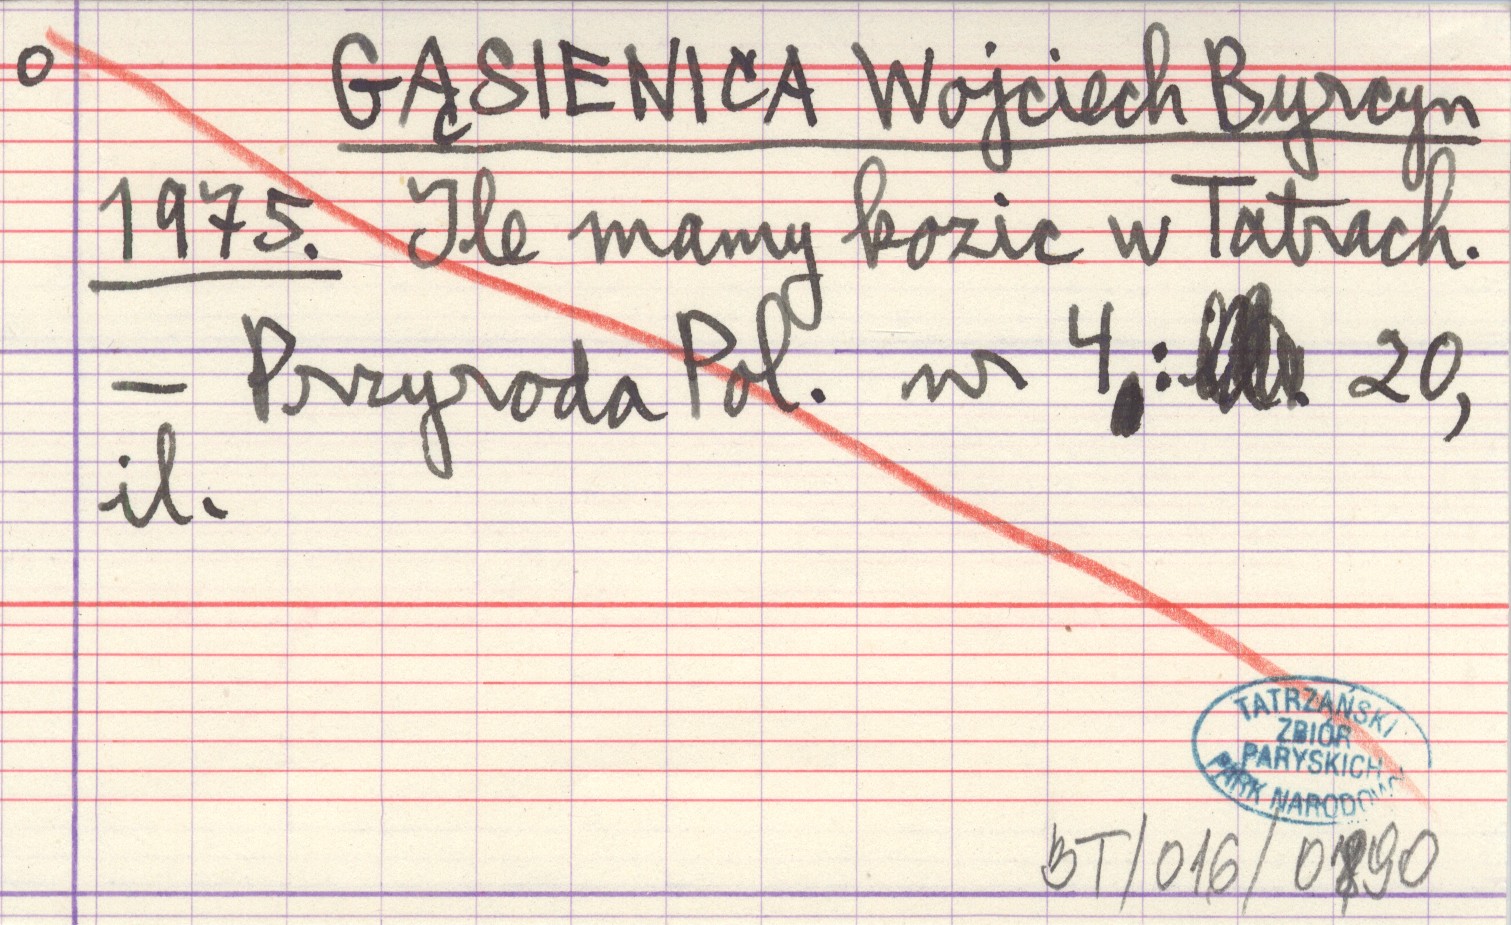 o GĄSIENICA Wojciech Byrcyn
1975. Ile mamy kozic w Tatrach.
– Przyroda Pol. nr 4 : 20,
il.
TATRZAŃSKI
ZBIÓR
PARYSKICH
PARK NARODOWY
BT/016/0190